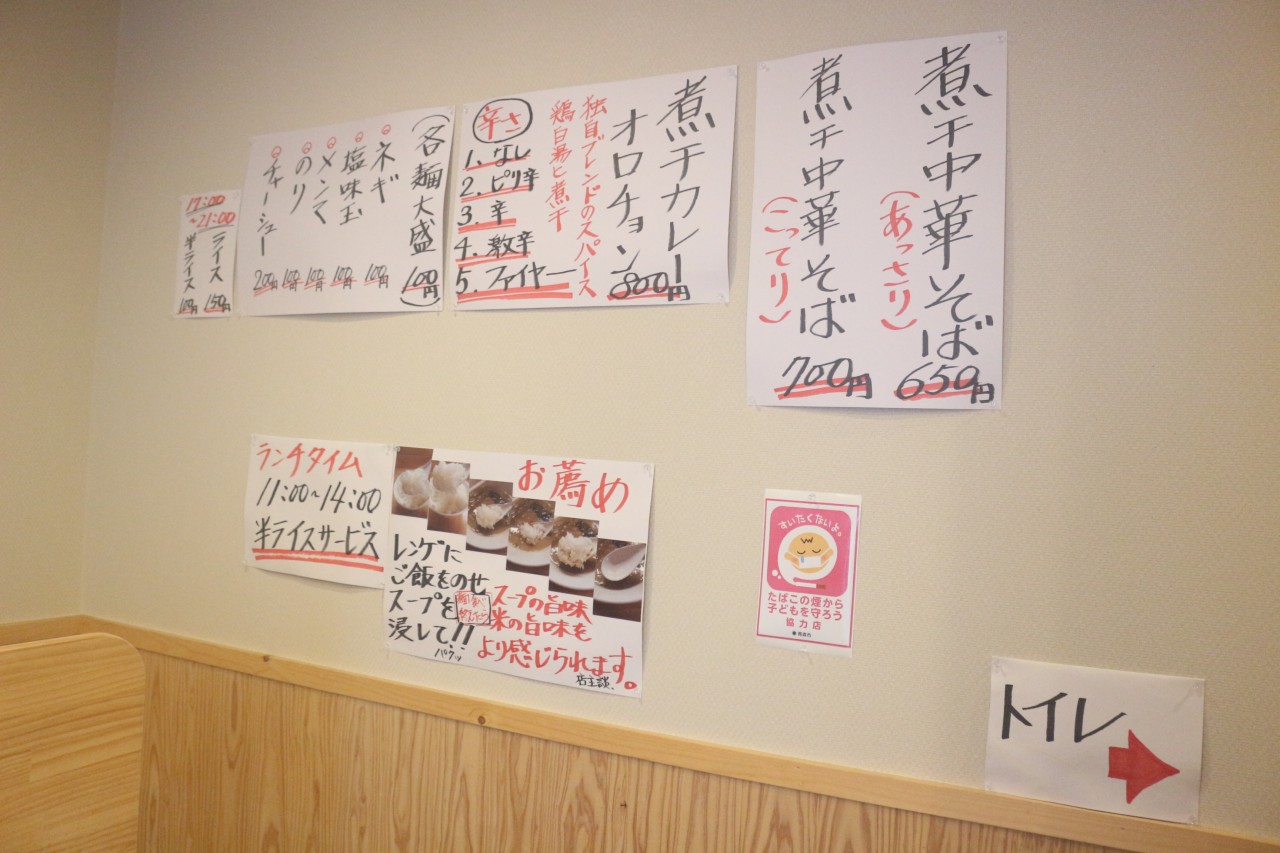 煮干中華そば
(あっさり)
650円
煮干中華そば
(こってり)
700円
煮干カレー
オロチョン
800円
独自ブレンドのスパイス
鶏白湯と煮干
辛さ
1. なし
2. ピリ辛
3. 辛
4. 激辛
5. ファイヤー
(各麺大盛 100円)
ネギ 100円
塩味玉 100円
メンマ 100円
のり 100円
チャーシュー 200円
17:00
~21:00
ライス 150円
半ライス 100円
ランチタイム
11:00~14:00
半ライスサービス
お薦め
レンゲに
ご飯をのせ
スープを
浸して!!
パクッ
スープの旨味
米の旨味を
より感じられます。
店主談.
すいたくないよ。
たばこの煙から
子どもを守ろう
協力店
トイレ